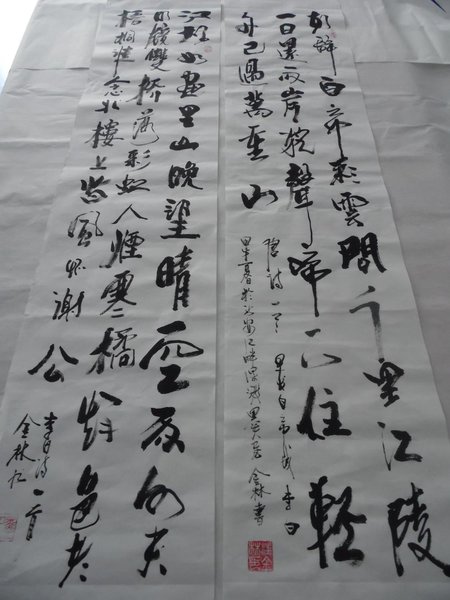 朝辭白帝彩雲間千里江陵
一日還兩岸猿聲啼不住輕
舟已過萬重山
唐詩一首 早發白帝城 李白
金林書
江城如畫里山晚望晴空兩水夾
明鏡雙橋落彩虹人煙寒橘柚秋色老
梧桐誰念北樓上臨風懷謝公
李白詩一首
金林書